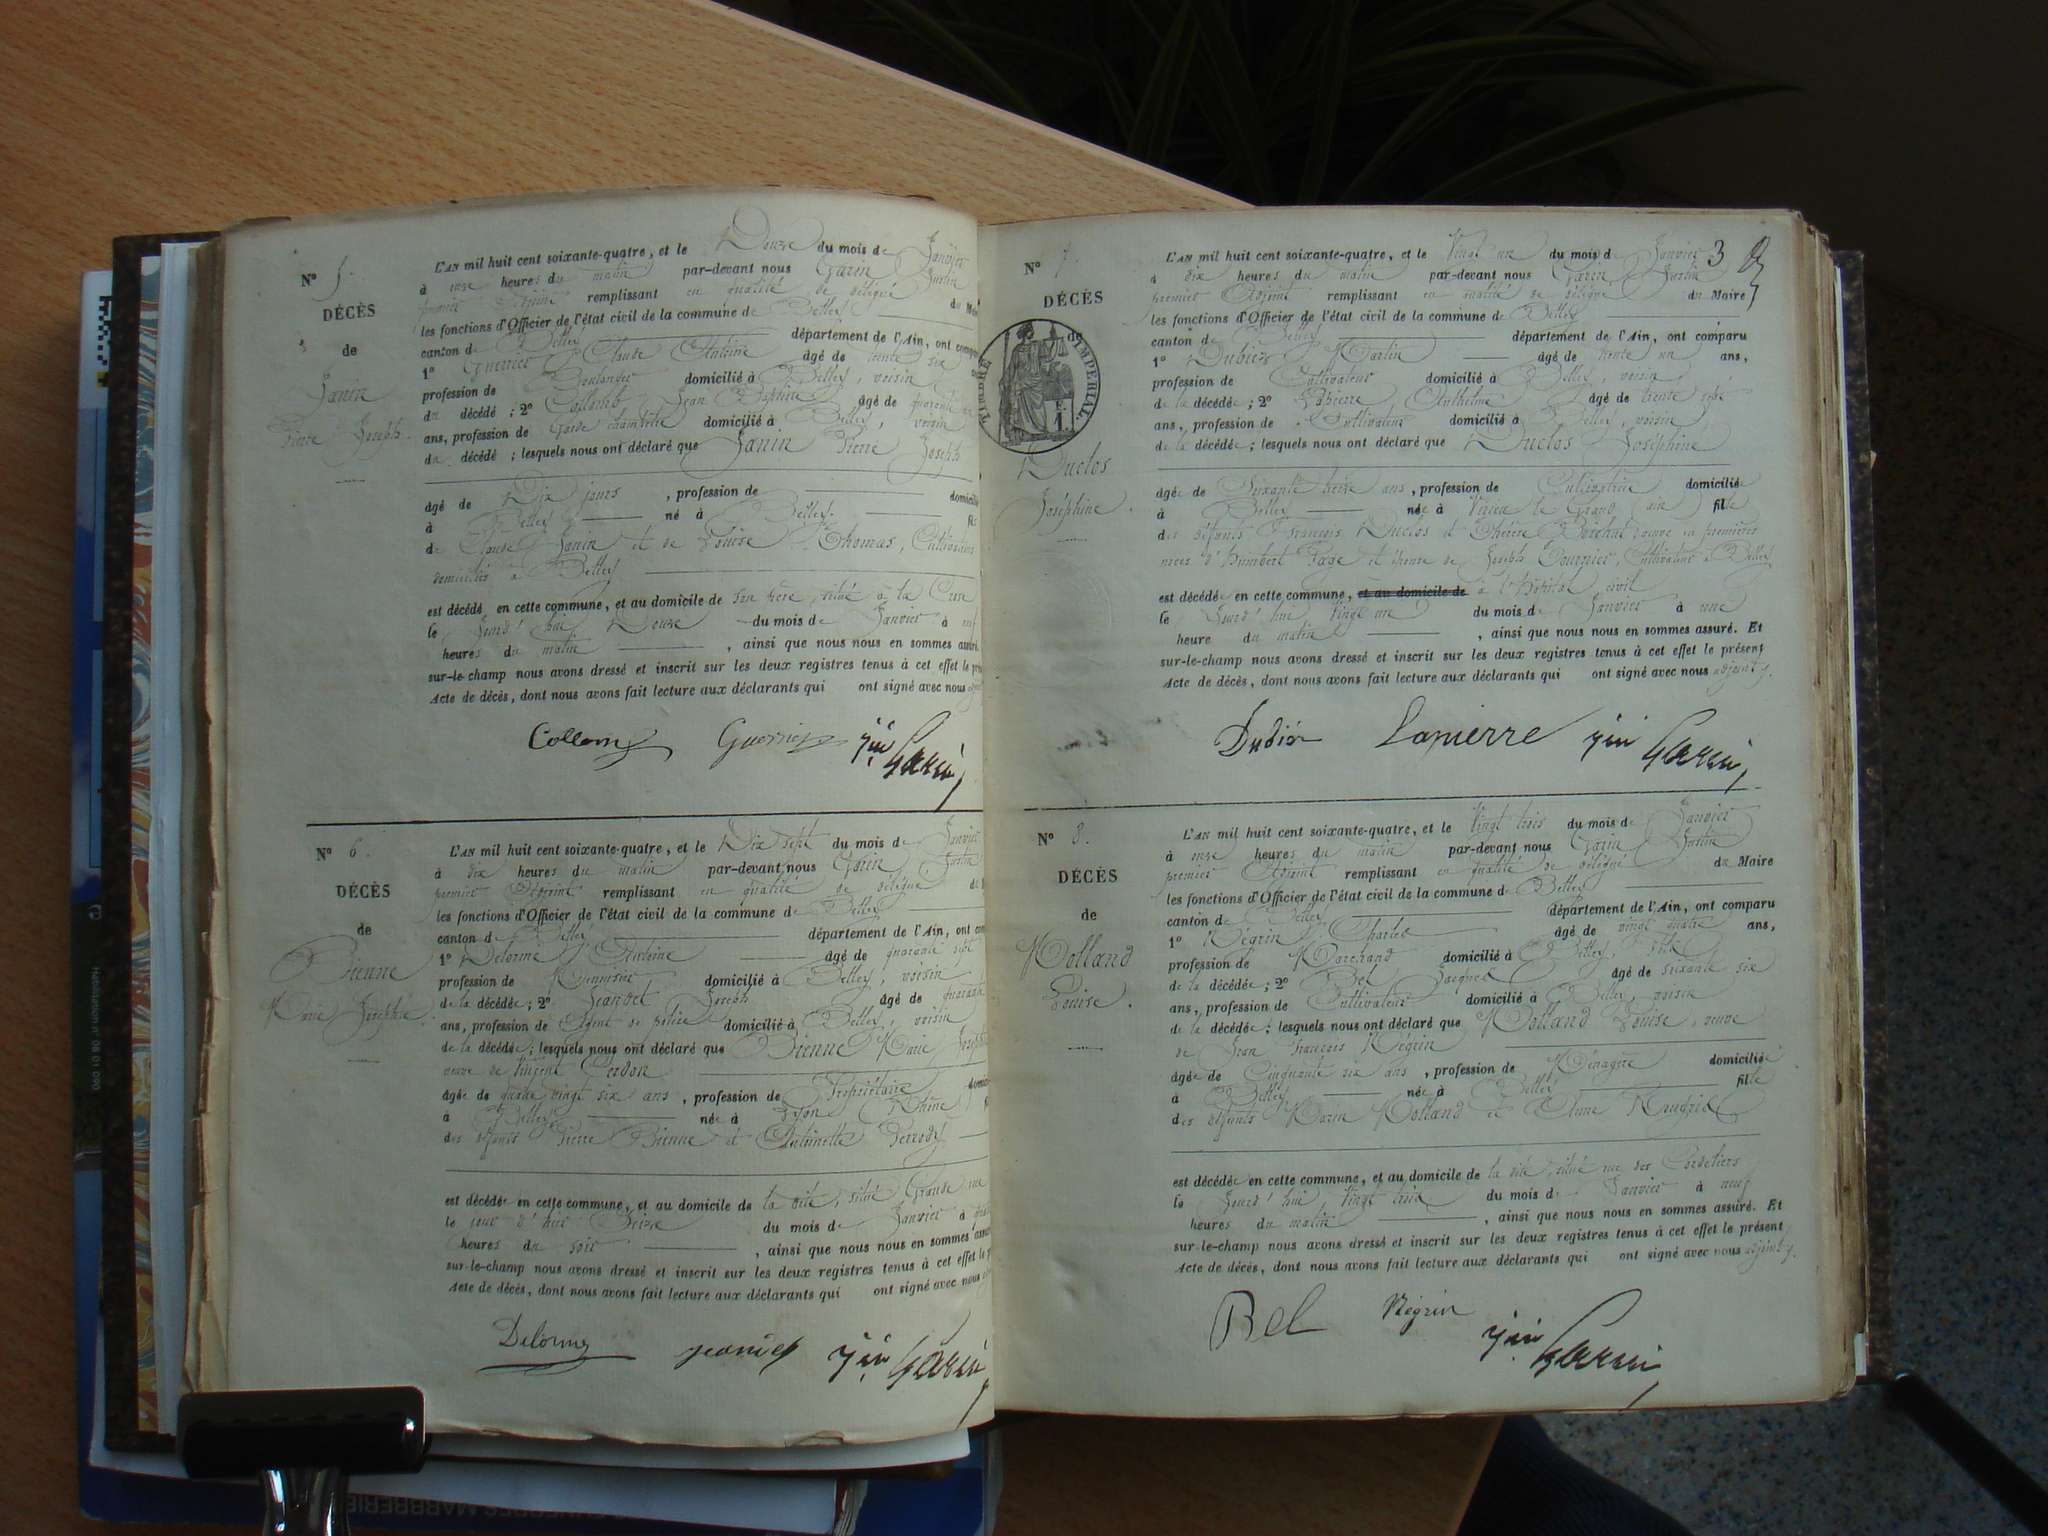 N° 5.
DÉCÈS
de
Janin
Pierre Joseph.
L'AN mil huit cent soixante-quatre, et le Douze du mois de Janvier
à onze heures du matin par-devant nous Garin Justin
premier Adjoint remplissant en qualité de délégué du Maire
les fonctions d'Officier de l'état civil de la commune de Belley
canton de Belley département de l'Ain, ont comparu
1° Guerrier Claude Antoine âgé de trente six
profession de Boulanger domicilié à Belley, voisin
du décédé ; 2° Collomb Jean Baptiste âgé de quarante
ans, profession de Garde champêtre domicilié à Belley, voisin
du décédé ; lesquels nous ont déclaré que Janin Pierre Joseph
âgé de Dix jours , profession de domicilié
à Belley né à Belley. fils
de Claude Janin et de Louise Thomas, Cultivateurs
domiciliés à Belley
est décédé en cette commune, et au domicile de son père, situé à la
le Jourd'hui Douze du mois de Janvier à
heures du matin , ainsi que nous nous en sommes assuré.
sur-le-champ nous avons dressé et inscrit sur les deux registres tenus à cet effet le
Acte de décès, dont nous avons fait lecture aux déclarants qui ont signé avec nous
Collomb Guerrier Jin Garin
N° 6.
DÉCÈS
de
Bienne
Marie Josephte.
L'AN mil huit cent soixante-quatre, et le Dix sept du mois de Janvier
à dix heures du matin par-devant nous Garin Justin
premier Adjoint remplissant en qualité de délégué
les fonctions d'Officier de l'état civil de la commune de Belley
canton de Belley département de l'Ain, ont
1° Delorme Antoine âgé de quarante sept
profession de Menuisier domicilié à Belley, voisin
de la décédée ; 2° Jeandet Joseph âgé de quarante
ans, profession de Agent de police domicilié à Belley, voisin
de la décédée ; lesquels nous ont déclaré que Bienne Marie
veuve de Vincent Cerdon
âgée de quatre vingt six ans , profession de Propriétaire
à Belley née à Lyon (Rhône)
des défunts Pierre Bienne et Antoinette
est décédée en cette commune, et au domicile de la dite, situé Grande rue
le jour d'hier Seize du mois de Janvier à
heures du soir , ainsi que nous nous en sommes
sur-le-champ nous avons dressé et inscrit sur les deux registres tenus à cet effet le
Acte de décès, dont nous avons fait lecture aux déclarants qui ont signé avec nous
Delorme jeandet Jin Garin
3
N° 7.
DÉCÈS
TIMBRE IMPÉRIAL
Duclos
Joséphine.
L'AN mil huit cent soixante-quatre, et le Vingt un du mois de Janvier
à dix heures du matin par-devant nous Garin Justin
premier Adjoint remplissant en qualité de délégué du Maire
les fonctions d'Officier de l'état civil de la commune de Belley
canton de Belley département de l'Ain, ont comparu
1° Martin âgé de trente un ans,
profession de Cultivateur domicilié à Belley, voisin
de la décédée ; 2° Anthelme âgé de trente sept
ans, profession de Cultivateur domicilié à Belley, voisin
de la décédée ; lesquels nous ont déclaré que Duclos Joséphine
âgée de Soixante treize ans , profession de Cultivatrice domiciliée
à Belley née à Virieu le Grand (ain) fille
des défunts François Duclos et Thérèse veuve en premières
noces d'Humbert Page et épouse de Joseph Fournier, Cultivateur à Belley
est décédée en cette commune, et au domicile de à l'Hôpital civil
le Jourd'hui Vingt un du mois de Janvier à une
heure du matin , ainsi que nous nous en sommes assuré. Et
sur-le-champ nous avons dressé et inscrit sur les deux registres tenus à cet effet le présent
Acte de décès, dont nous avons fait lecture aux déclarants qui ont signé avec nous adjoint.
Lapierre Jin Garin
N° 8.
DÉCÈS
de
Molland
Louise.
L'AN mil huit cent soixante-quatre, et le Vingt trois du mois de Janvier
à onze heures du matin par-devant nous Garin Justin
premier Adjoint remplissant en qualité de délégué du Maire
les fonctions d'Officier de l'état civil de la commune de Belley
canton de Belley département de l'Ain, ont comparu
1° Négrin Charles âgé de vingt quatre ans,
profession de Marchand domicilié à Belley, fils
de la décédée ; 2° Bel Jacques âgé de soixante six
ans, profession de Cultivateur domicilié à Belley, voisin
de la décédée ; lesquels nous ont déclaré que Molland Louise, veuve
de Jean François Négrin
âgée de Cinquante six ans , profession de Ménagère domiciliée
à Belley née à Belley fille
des défunts Marin Molland et Anne
est décédée en cette commune, et au domicile de la dite, situé rue des Cordeliers
le Jourd'hui Vingt trois du mois de Janvier à neuf
heures du matin , ainsi que nous nous en sommes assuré. Et
sur-le-champ nous avons dressé et inscrit sur les deux registres tenus à cet effet le présent
Acte de décès, dont nous avons fait lecture aux déclarants qui ont signé avec nous adjoint.
Bel Négrin Jin Garin